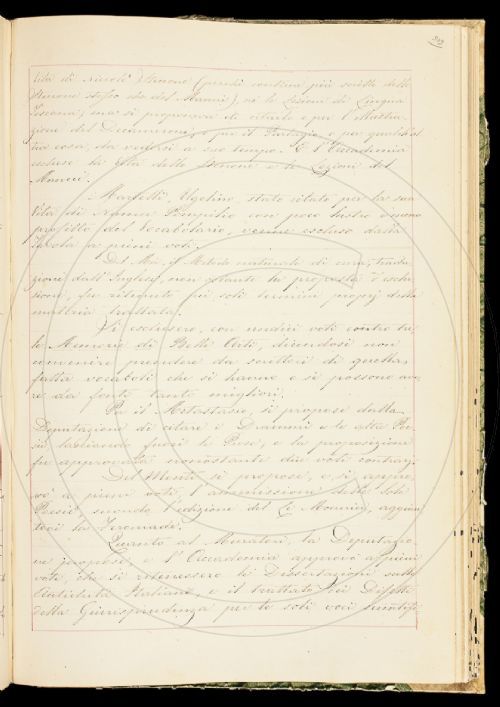 309
lità di Niccolò Sirone (perchè continu più scritte dello
Sirone stesso che del Manni), nè le Lezioni di Lingua
Toscana; ma si proponeva di citarlo e per l'Illustra-
zione del Decamerone, e per il Parlagio, e per qualch'al
tra cosa, da vedersi a suo tempo. E l'Accademia
escluse la Vita dello Sirone e le Lezioni del
Manni.
Martelli, Ugolino, stato citato per la sua
Vita di Numa Pompilio con poco lustro e meno
profitto del Vocabolario, venne escluso dalla
Tavola a pieni voti.
Del Moi, il Metodo naturale di cura, tradu-
zione dall'Inglese, non ostante la proposta d'esclu-
sione, fu ritenuto pei soli termini proprj della
materia trattata.
Si esclusero, con undici voti contro tre
le Memorie di Belle Arti, dicendosi non
convenire prendere da scrittori di quella
fatta vocaboli che si hanno e si possono ave-
re da fonti tanto migliori.
Per il Metastasio, si propose dalla
Deputazione di citare i Drammi e le altre Poe-
sie, lasciando fuori le Prose, e la proposizione
fu approvata nonostante due voti contrarj.
Del Menti si propose, e si appro-
vò a pieni voti, l'ammissione delle sole
Poesie secondo l'edizione del Le Monnier, aggiun-
tevi le
Quanto al Muratori, la Deputazio-
ne propose, e l'Accademia approvò a pieni
voti, che si ritenessero le Dissertazioni sulle
Antichità Italiane, e il trattato dei Difetti
della Giurisprudenza per le sole voci scientifi-